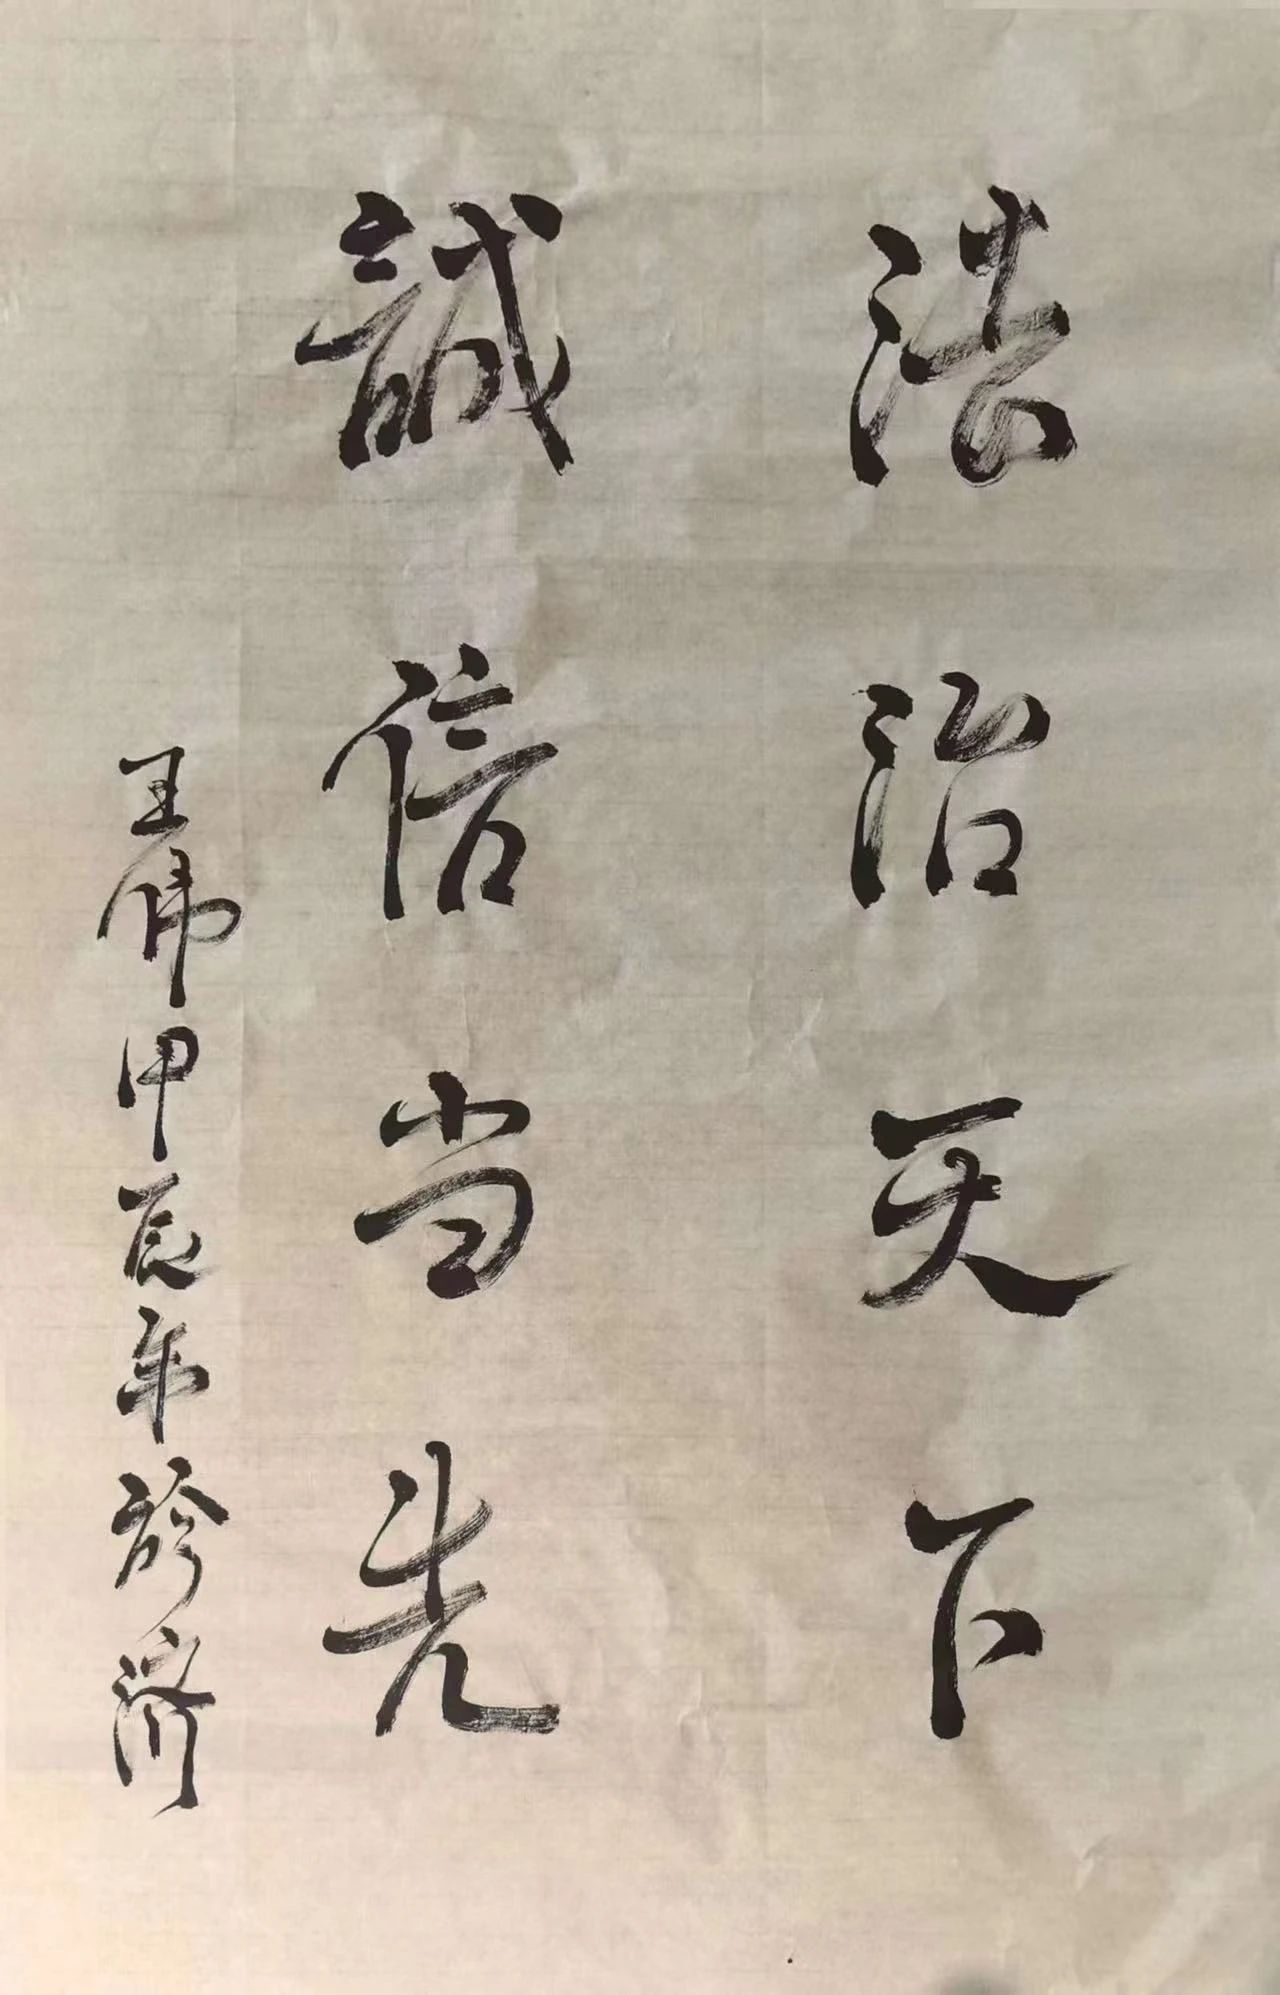 法治天下
誠信当先
王伟甲辰年於济